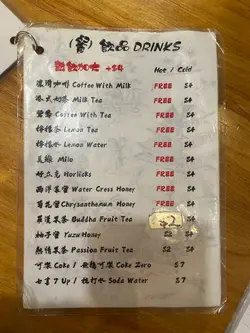 (餐) 飲品 DRINKS
凍飲加 +$4 Hot / Cold
Coffee With Milk FREE $4
港式奶茶 Milk Tea FREE $4
鴛鴦 Coffee With Tea FREE $4
檸樂茶 Lemon Tea FREE $4
檸檬水 Lemon Water FREE $4
美綠 Milo FREE $4
好立克 Horlicks FREE $4
西洋菜蜜 Water Cress Honey FREE $4
菊花蜜 Chrysanthemun Honey FREE $4
羅漢果茶 Buddha Fruit Tea $2
柚子蜜 Yuzu Honey $2 $4
熱情果茶 Passion Fruit Tea $2 $4
可樂 Coke / 無糖可樂 Coke Zero $7
七喜 7 Up / 梳打水 Soda Water $7